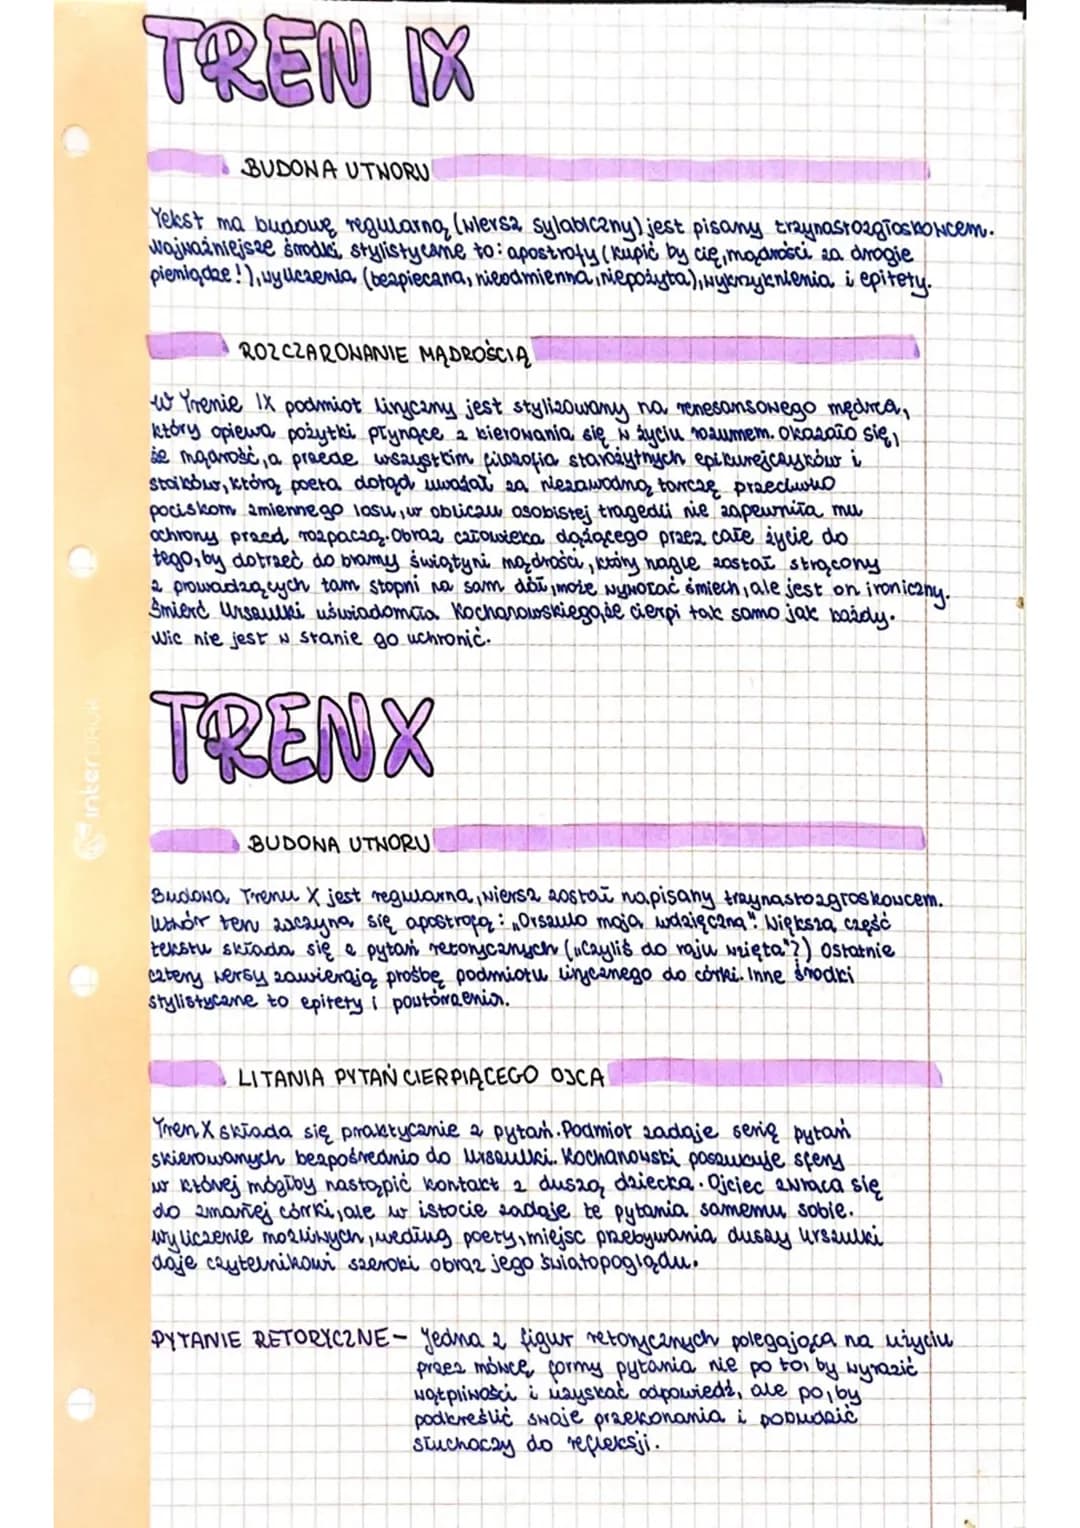 TREN IX
BUDOWA UTWORU
Tekst ma budowę regularną (wiersz sylabiczny) jest pisany trzynastozgłoskowcem.
Najważniejsze środki stylistyczne to: apostrofy (Kupić by cię, mądrości za drogie
pieniądze!), wyliczenia (bezpieczna, nieodmienna, niepożyta), wykrzyknienia i epitety.
ROZCZAROWANIE MĄDROŚCIĄ
W Trenie IX podmiot liryczny jest stylizowany na renesansowego mędrca,
który opiewa pożytki płynące z kierowania się w życiu rozumem. Okazało się,
że mądrość, a przede wszystkim filozofia starożytnych epikurejczyków i
stoików, którą poeta dotąd uważał za niezawodną tarczę przeciwko
pociskom zmiennego losu, w obliczu osobistej tragedii nie zapewniła mu
ochrony przed rozpaczą. Obraz człowieka dążącego przez całe życie do
tego, by dotrzeć do bramy świątyni mądrości, który nagle został strącony
z prowadzących tam stopni na sam dół, może wywołać śmiech, ale jest on ironiczny.
Śmierć Urszulki uświadomiła Kochanowskiego, że cierpi tak samo jak każdy.
Nic nie jest w stanie go uchronić.
TREN X
BUDOWA UTWORU
Budowa Trenu X jest regularna, wiersz został napisany trzynastozgłoskowcem.
Utwór ten zaczyna się apostrofą: „Orszulo moja wdzięczna". Większa część
tekstu składa się z pytań retorycznych („Czyliś do raju wzięta"?) Ostatnie
cztery wersy zawierają prośbę podmiotu lirycznego do córki. Inne środki
stylistyczne to epitety i powtórzenia.
LITANIA PYTAŃ CIERPIĄCEGO OJCA
Tren X składa się praktycznie z pytań. Podmiot zadaje serię pytań
skierowanych bezpośrednio do Urszulki. Kochanowski poszukuje sfery
w której mógłby nastąpić kontakt z duszą dziecka. Ojciec zwraca się
do zmarłej córki, ale w istocie zadaje te pytania samemu sobie.
Wyliczenie możliwych, według poety, miejsc przebywania duszy Urszulki
daje czytelnikowi szeroki obraz jego światopoglądu.
PYTANIE RETORYCZNE - Jedna z figur retorycznych polegająca na użyciu
przez mówcę formy pytania nie po to, by wyrazić
wątpliwości i uzyskać odpowiedź, ale po, by
podkreślić swoje przekonania i pobudzić
słuchaczy do refleksji.
interdruk